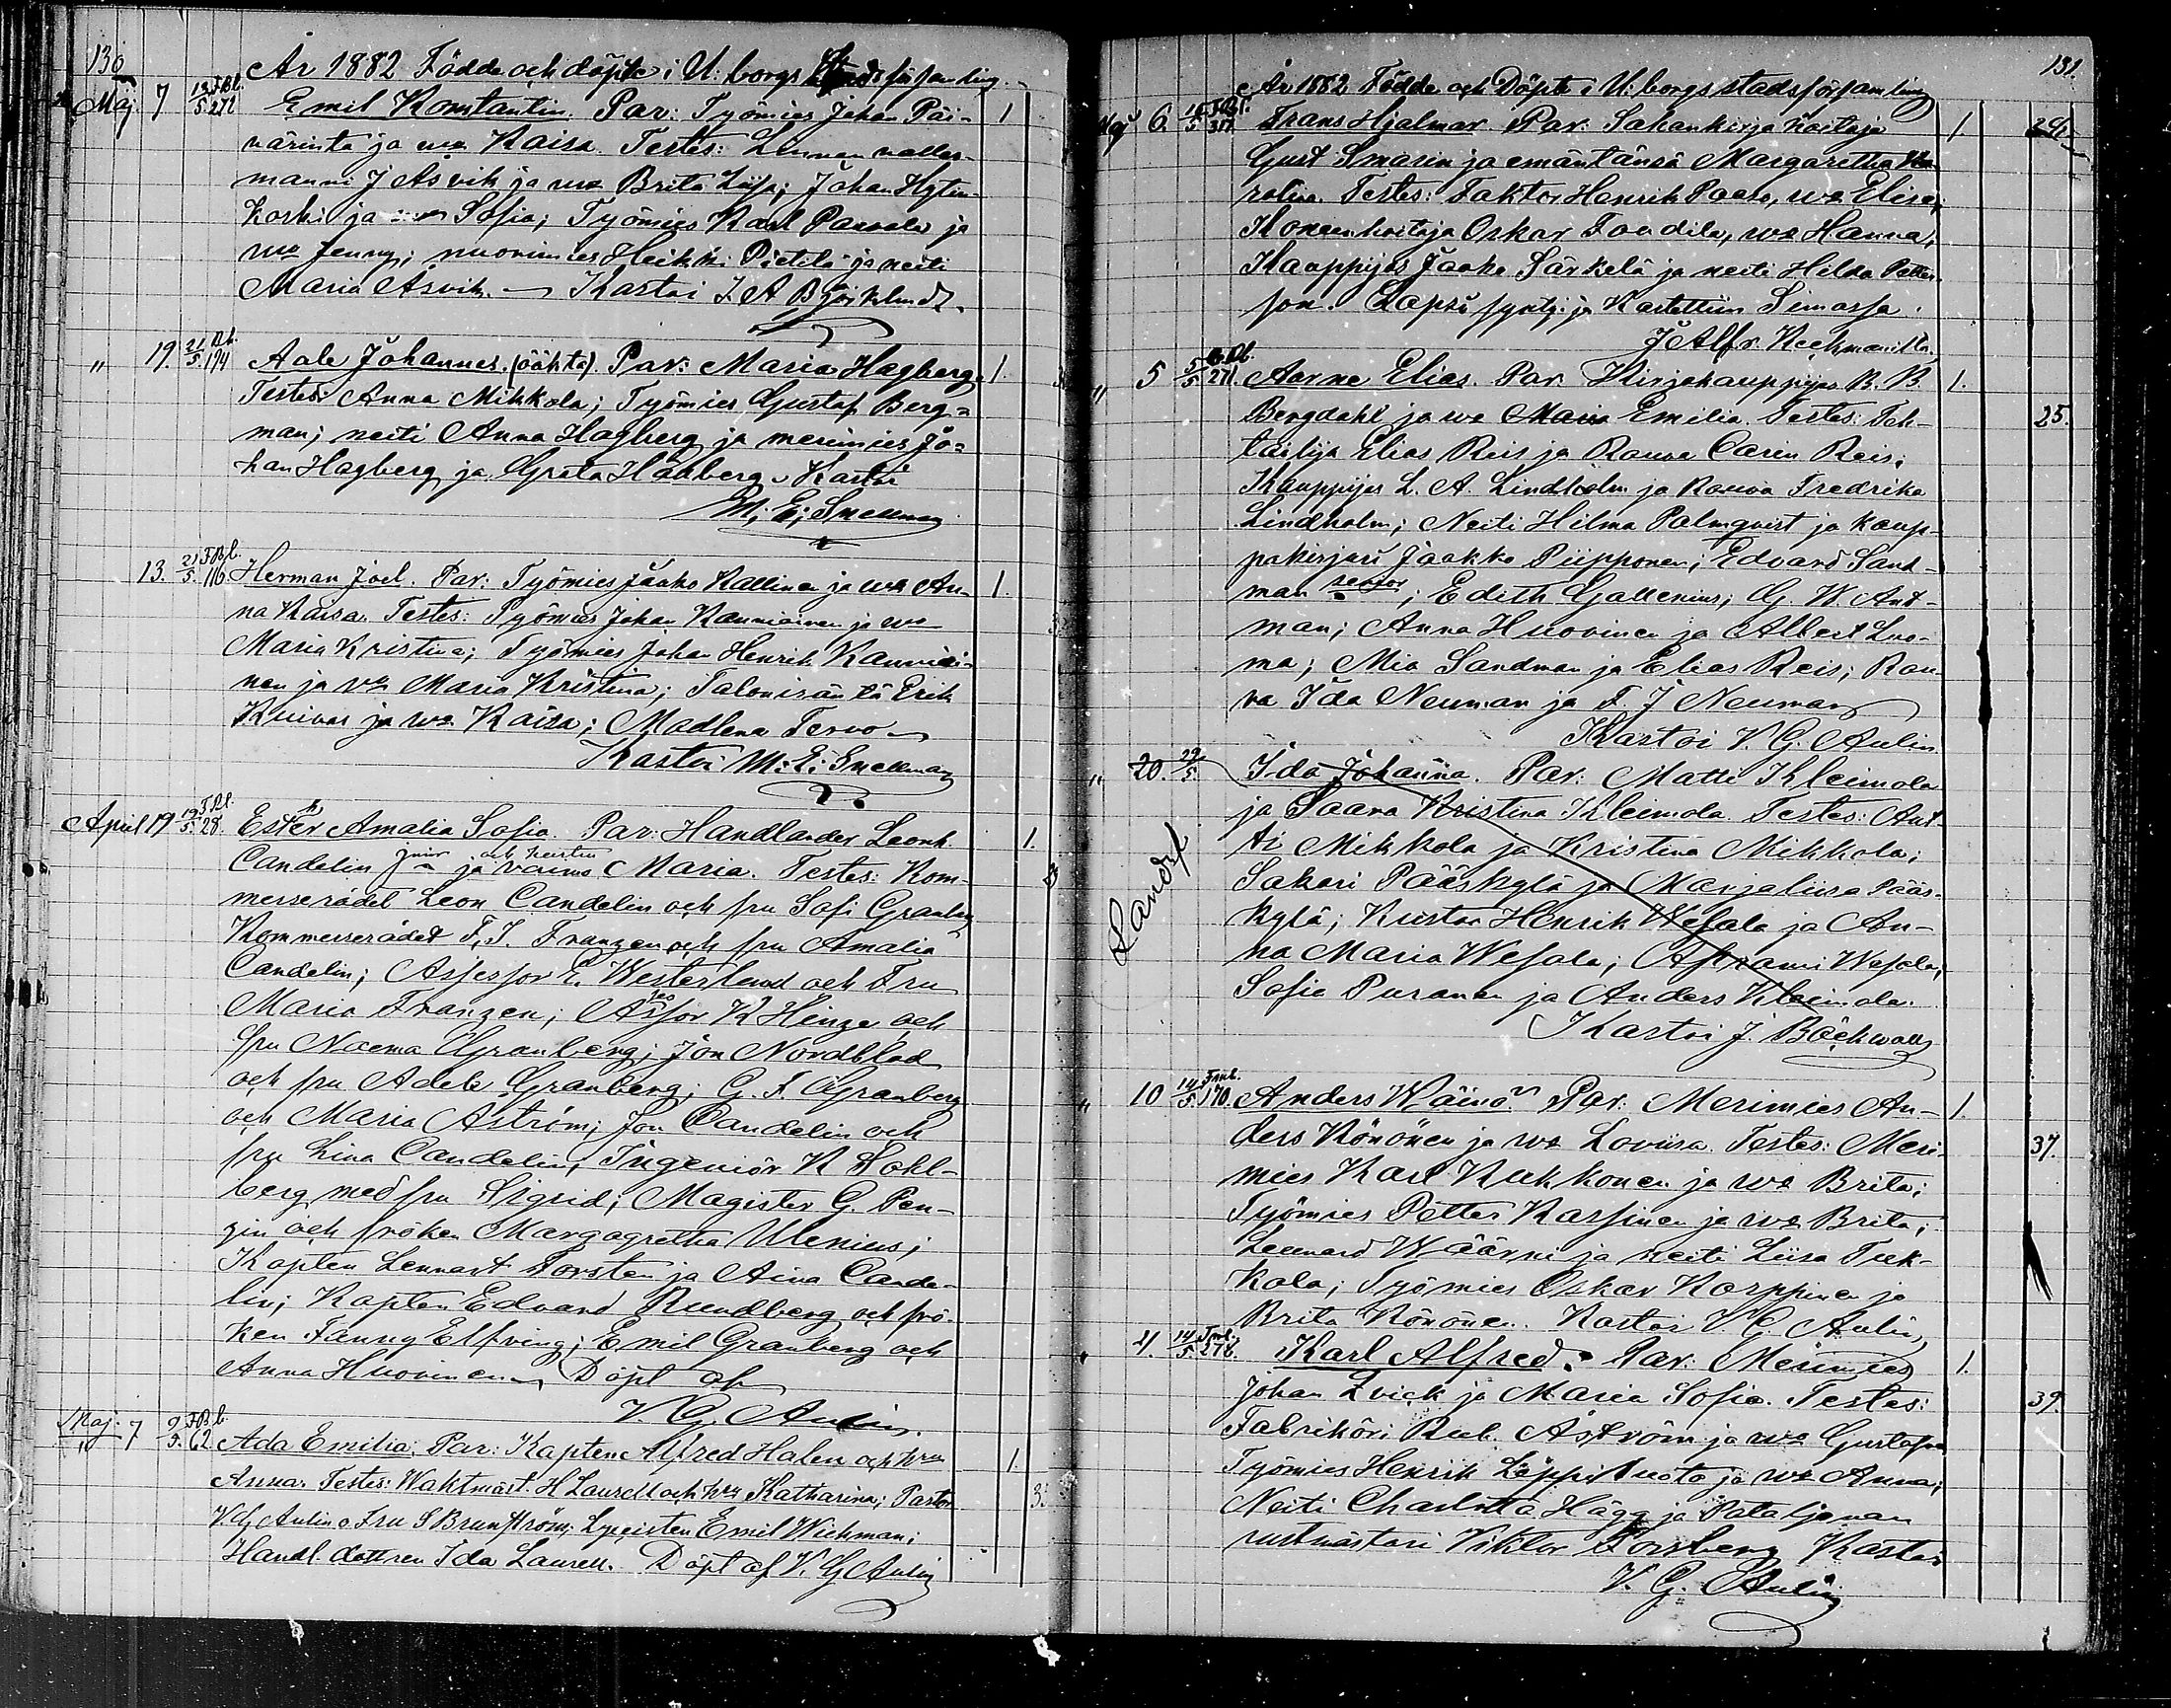 130
År 1882 Födde och döpte i U:borgs Stadsförsamling.
Maj. 7 13/5 FBb. 272 Emil Konstantin. Par: Työmies Johan Päi- 1
värinta ja wo Kaisa. Testes: Linnan valles-
manni J Åsvik ja wo Brita Liisa; Johan Hytin-
koski ja wo Sofia; Työmies Karl Paavola ja
wo Jenny; nuorimies Heikki Pietilä ja neiti
Maria Åsvik. Kastoi J. A Björklund.
" 19. 21/5 Bb. 194 Aale Johannes. (äähtä). Par: Maria Hagberg. 1.
Testes: Anna Mikkola; Työmies Gustaf Berg-
man; neiti Anna Hagberg ja merimies Jo-
han Hagberg ja Greta Hakberg. Kastoi
M; E; Snellman
13. 21/5 FBb. 116 Herman Joel. Par: Työmies Jaako Kallinen ja wo An- 1.
na Kaisa. Testes: Työmies Johan Kauniainen ja wo
Maria Kristina; Työmies Johan Henrik Kauniai-
nen ja vo Maria Kristina; Talonisäntä Erik
Kuivas ja wo Kaisa; Madlena Tervo
Kastoi M: E: Snellman
April 19 19/5 FBb. 28. Ester Amalia Sofia. Par: Handlander Leonh. 1.
Candelin junr ja vaimo och hustru Maria. Testes: Kom-
merserådet Leon Candelin och fru Sofi Granberg
Kommerserådet F. J. Franzen och fru Amalia
Candelin; Assessor E. Westerlund och Fru
Maria Franzen; Assessor K Hinze och
fru Naema Granberg; Jon Nordblad
och fru Adele Granberg; G. F. Granberg
och Maria Åström; Jon Candelin och
fru Lina Candelin; Ingeniör K Dahl-
berg med fru Sigrid; Magister G. Pen-
zin och fröken Margagretha Ulenius;
Kapten Lennart Torsten ja Aina Cande-
lin; Kapten Edvard Rundberg och frö-
ken Fanny Elfving; Emil Granberg och
Anna Huovinen. Döpt af
V. G. Aulin.
Maj. 7 9/5 FBb. 62 Ada Emilia. Par: Kapten Alfred Halen och hru 1
Anna. Testes: Waktmäst. H Laurell och hru Katharina; Pastor
V. G Aulin o Fru S Brunström; Lyceisten Emil Wichman;
Handl. dottren Ida Laurell. Döpt af V. G Aulin
131.
År 1882 Födde och Döpte i U:borgs stadsförsamling
Maj 6. 317 Frans Hjalmar. Par: Sahankirja hoitaja 1.
Gust Smarin ja emäntänsä Margaretha Ka-
rolina. Testes: Faktor Henrik Paato, wo Elisa;
Koneenhoitaja Oskar Foudila, wo Hanna;
Kauppijas Jaako Särkelä ja neiti Hilda Petter-
son. Lapsi syntyi ja Kastettiin Simossa.
J Alfr. Keckman
" 5 5/5 271 Aarne Elias. Par. Kirjakauppijas B. B. 1.
Bergdahl ja wo Maria Emilia. Testes: Teh- 25.
tailija Elias Reis ja Rouva Carin Reis;
Kauppijas L. A. Lindholm ja Rouva Fredrika
Lindholm; Neiti Hilma Palmqvist ja kaup-
pakirjuri Jaakko Piipponen; Edvard Sand-
man senjor; Edith Gallenius; G. W. Ant-
man; Anna Huovinen ja Albert Luo-
ma; Mia Sandman ja Elias Reis; Rou-
va Ida Neuman ja F. J Neuman
Kastoi V. G. Aulin.
" 20. 22/5. Ida Johanna. Par: Matti Kleimola
ja Saara Kristina Kleimola. Testes: Ant-
ti Mikkola ja Kristina Mikkola;
Landsf.
Sakari Pääskylä ja Marjaliisa Pääs-
kylä; Kustaa Henrik Wesala ja An-
na Maria Wesala; Aframi Wesala;
Sofia Puranen ja Anders Kleimola.
Kastoi J. Bäckwall
" 10 14/5. 170. Anders Wäinö. Par: Merimies An- 1.
ders Könönen ja wo Lovisa. Testes: Meri- 37.
mies Karl Kukkonen ja wo Brita;
Työmies Petter Karsinen ja wo Brita;
Leenard Wäärni ja neiti Liisa Tuk-
kola; Työmies Oskar Karppinen ja
Brita Könönen. Kastoi V. G. Aulin
4. 14/5. 278. Karl Alfred. Par: Merimies 1.
Johan Qvick ja Maria Sofia. Testes: 39.
Fabriköri Rub. Åström ja wo Gustafva
Työmies Henrik Läppiluoto ja wo Anna;
Neiti Charlotta Hägg ja Pataljonan
rustmästari Viktor Forsberg Kastoi
V. G. Aulin